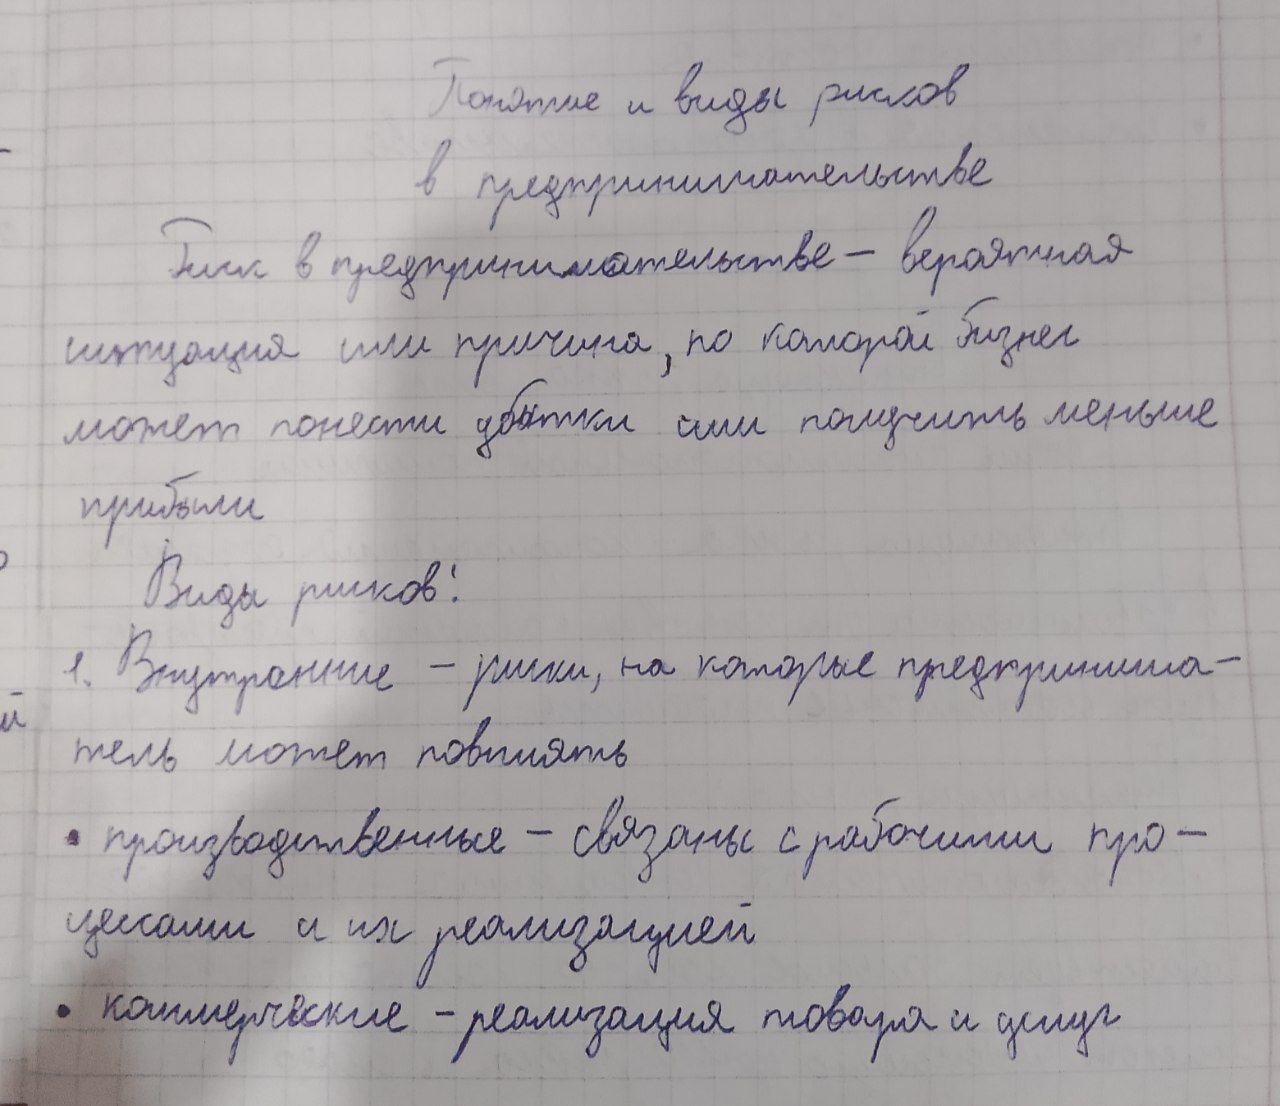 Понятие и виды рисков
в предпринимательстве
Риск в предпринимательстве – вероятная
ситуация или причина, по которой бизнес
может понести убытки или получить меньше
прибыли
Виды рисков:
1. Внутранние – риски, на которые предпринима-
тель может повлиять
• производственные – связаны с рабочими про-
цессами и их реализацией
• коммерческие – реализация товара и услуг